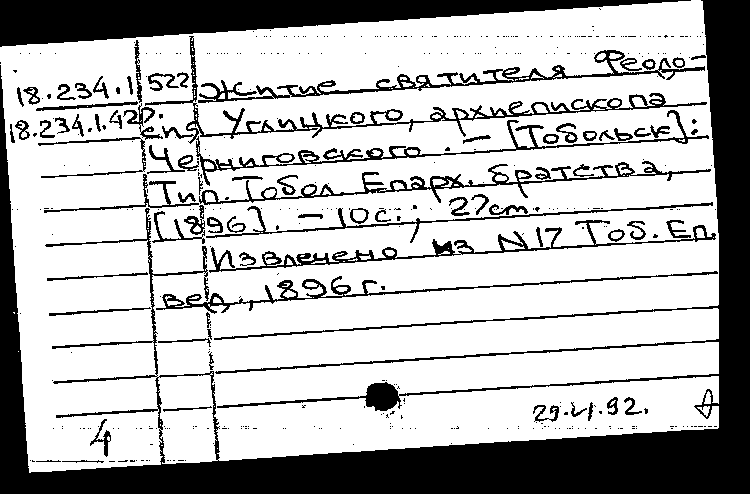 18.234.1.522 Житие святителя Феодо-
18.234.1.427. сия Углицкого, архиепископа
Черниговского. – [Тобольск]:
Тип. Тобол. Епарх. братства,
[1896]. – 10с.; 27cm.
Извлечено из N17 Тоб. Еп.
вед., 1896 г.
29.VI.92.
4